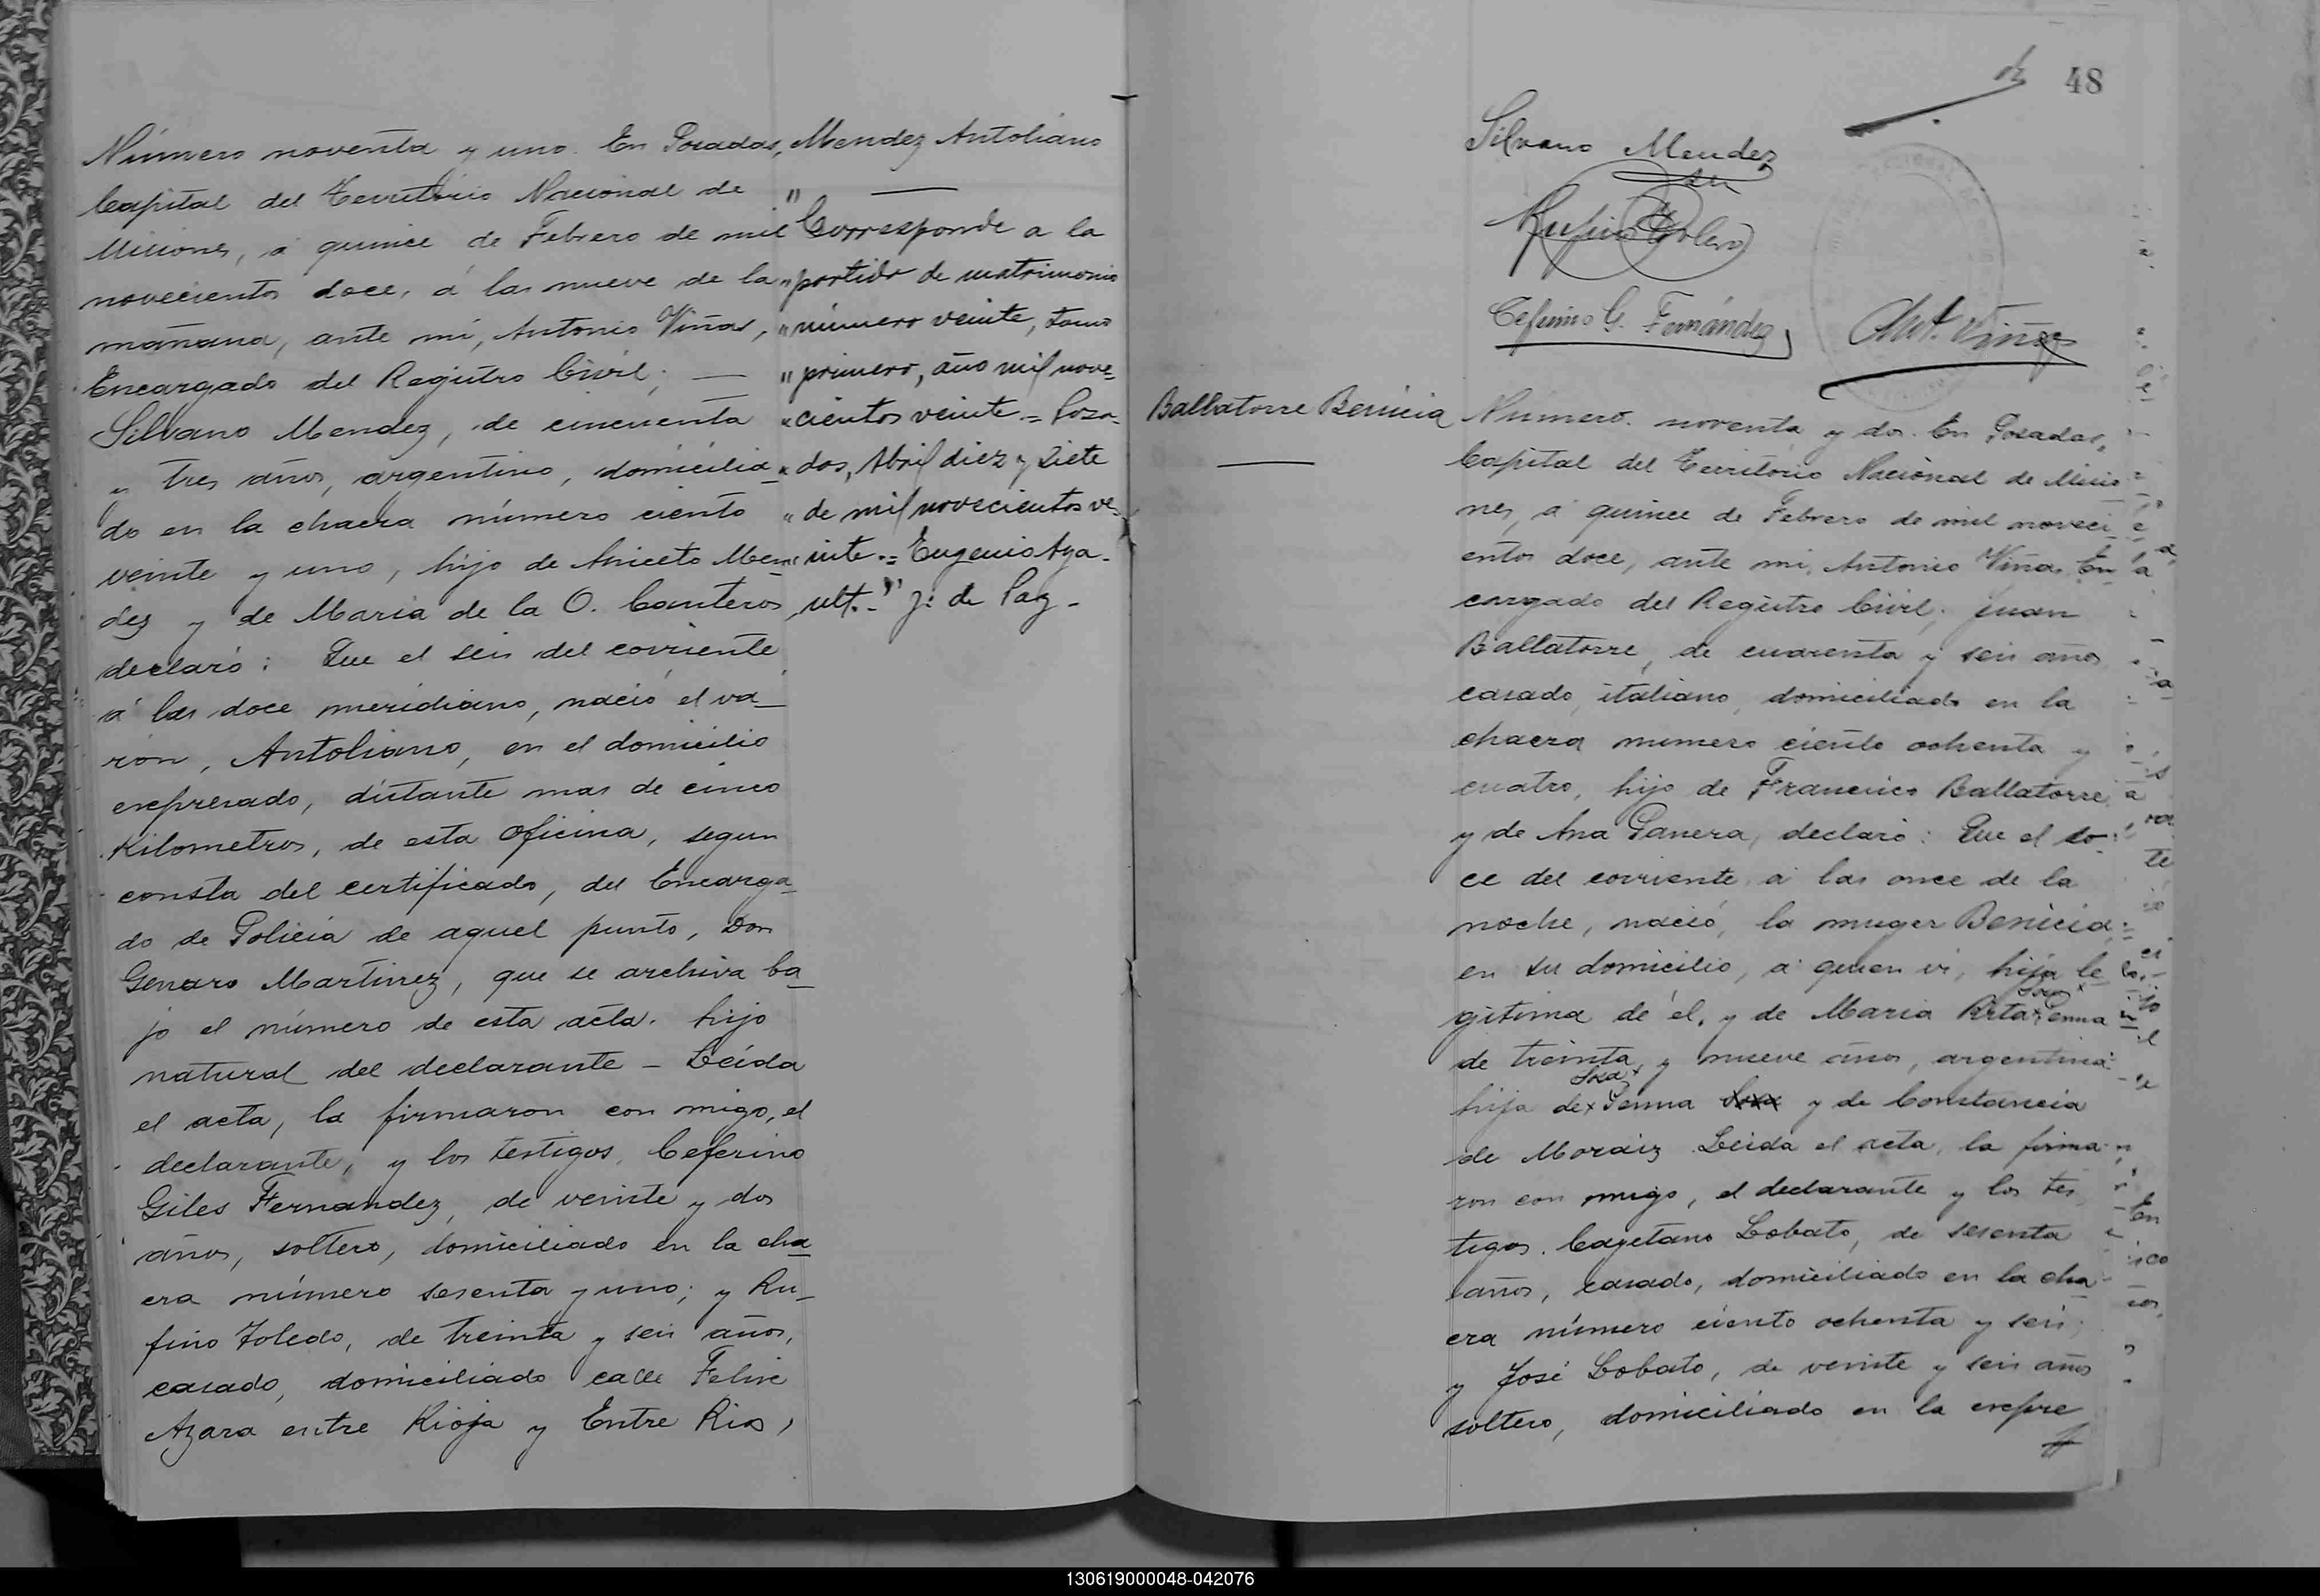 Número noventa y uno. En Posadas,
Capital del Territorio Nacional de
Misiones, á quince de Febrero de mil
novecientos doce, á las nueve de la
mañana, ante mi, Antonio Viñas,
Encargado del Registro Civil; —
Silvano Mendez, de cincuenta
y tres años, argentino, domicilia-
do en la chacra número ciento
veinte y uno, hijo de Aniceto Men-
dez y de Maria de la O. Canteros
declaró: Que el seis del corriente
á las doce meridiano, nació el va-
ron, Antoliano, en el domicilio
expresado, distante mas de cinco
Kilometros, de esta oficina, segun
consta del certificado, del Encarga-
do de Policia de aquel punto, Don
Genaro Martinez, que se archiva ba-
jo el número de esta acta. hijo
natural del declarante - Leida
el acta, la firmaron con migo, el
declarante, y los testigos, Ceferino
Giles Fernandez, de veinte y dos
años, soltero, domiciliado en la cha-
cra número sesenta y uno; y Ru-
fino Toledo, de treinta y seis años,
casado, domiciliado calle Felix
Azara entre Rioja y Entre Rios,
Mendez Antoliano
" —
Corresponde a la
" partida de matrimonio
" número veinte, tomo
" primero, año mil nove-
" cientos veinte = Posa-
" das, Abril diez y siete
" de mil novecientos ve-
" inte = Eugenio Aza-
ult." J: de Paz -
48
Silvano Mendez
Rufino Toledo
Ceferino G. Fernández
Ant. Viñas
Ballatorre Benicia
Número noventa y dos. En Posadas,
Capital del Territorio Nacional de Misio
nes, á quince de Febrero de mil noveci
entos doce, ante mi, Antonio Viñas, En
cargado del Registro Civil; Juan
Ballatorre, de cuarenta y seis años
casado, italiano, domiciliado en la
chacra numero ciento ochenta y
cuatro, hijo de Francisco Ballatorre
y de Ana Panera, declaró: Que el do-
ce del corriente á las once de la
noche, nació, la muger Benicia,
en su domicilio, á quien vi, hija le
gitima de él, y de Maria Rita Sosa
de treinta y nueve años, argentina
hija de Sosa y de Constancia
de Moraiz Leida el acta, la firma-
ron con migo, el declarante y los tes
tigos. Cayetano Lobato, de sesenta
años, casado, domiciliado en la cha-
cra número ciento ochenta y seis;
y José Lobato, de veinte y seis años
soltero, domiciliado en la expre
130619000048-042076